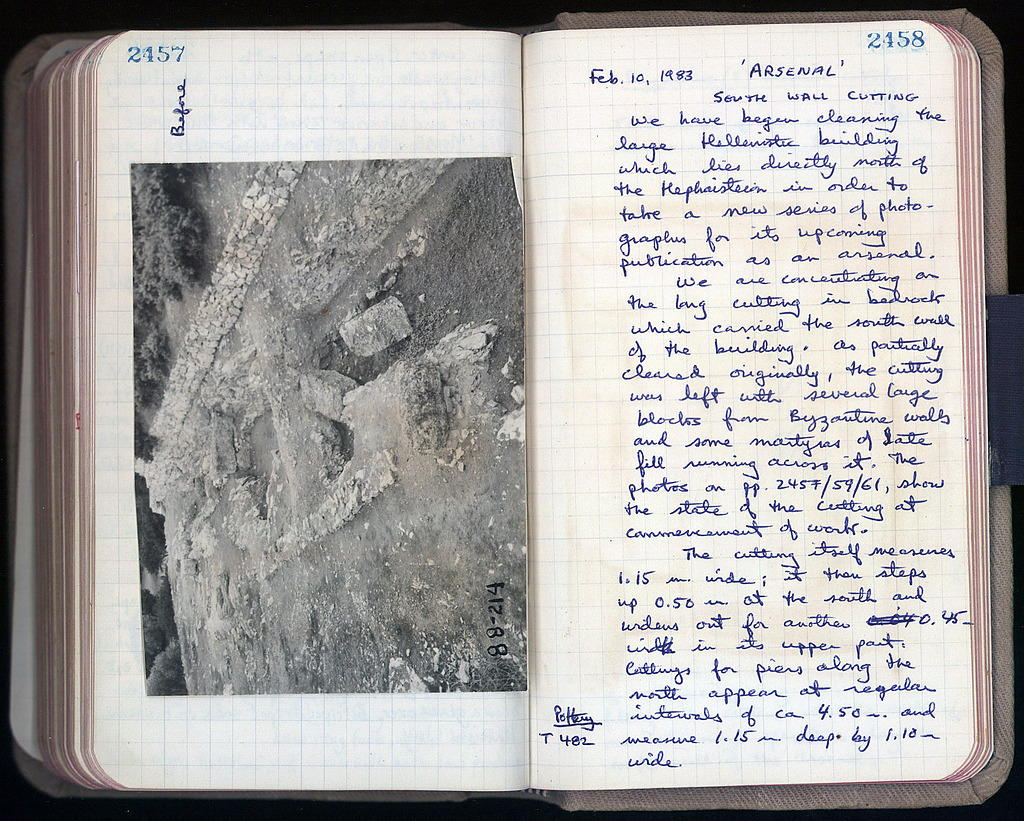 2457
Before
88-214
2458
Feb. 10, 1983 'ARSENAL'
SOUTH WALL CUTTING
We have begun cleaning the
large Hellenistic building
which lies directly north of
the Hephaisteion in order to
take a new series of photo-
graphs for its upcoming
publication as an arsenal.
We are concentrating on
the long cutting in bedrock
which carried the south wall
of the building. As partially
cleared originally, the cutting
was left with several large
blocks from Byzantine walls
and some martyras of late
fill running across it. The
photos on pp. 2457/59/61, show
the state of the cutting at
commencement of work.
The cutting itself measures
1.15 m. wide; it then steps
up 0.50 m. at the south and
widens out for another 0.45 -
in its upper part.
Cuttings for piers along the
north appear at regular
intervals of ca 4.50 m. and
measure 1.15 m. deep by 1.10 m
wide.
Pottery
T 482